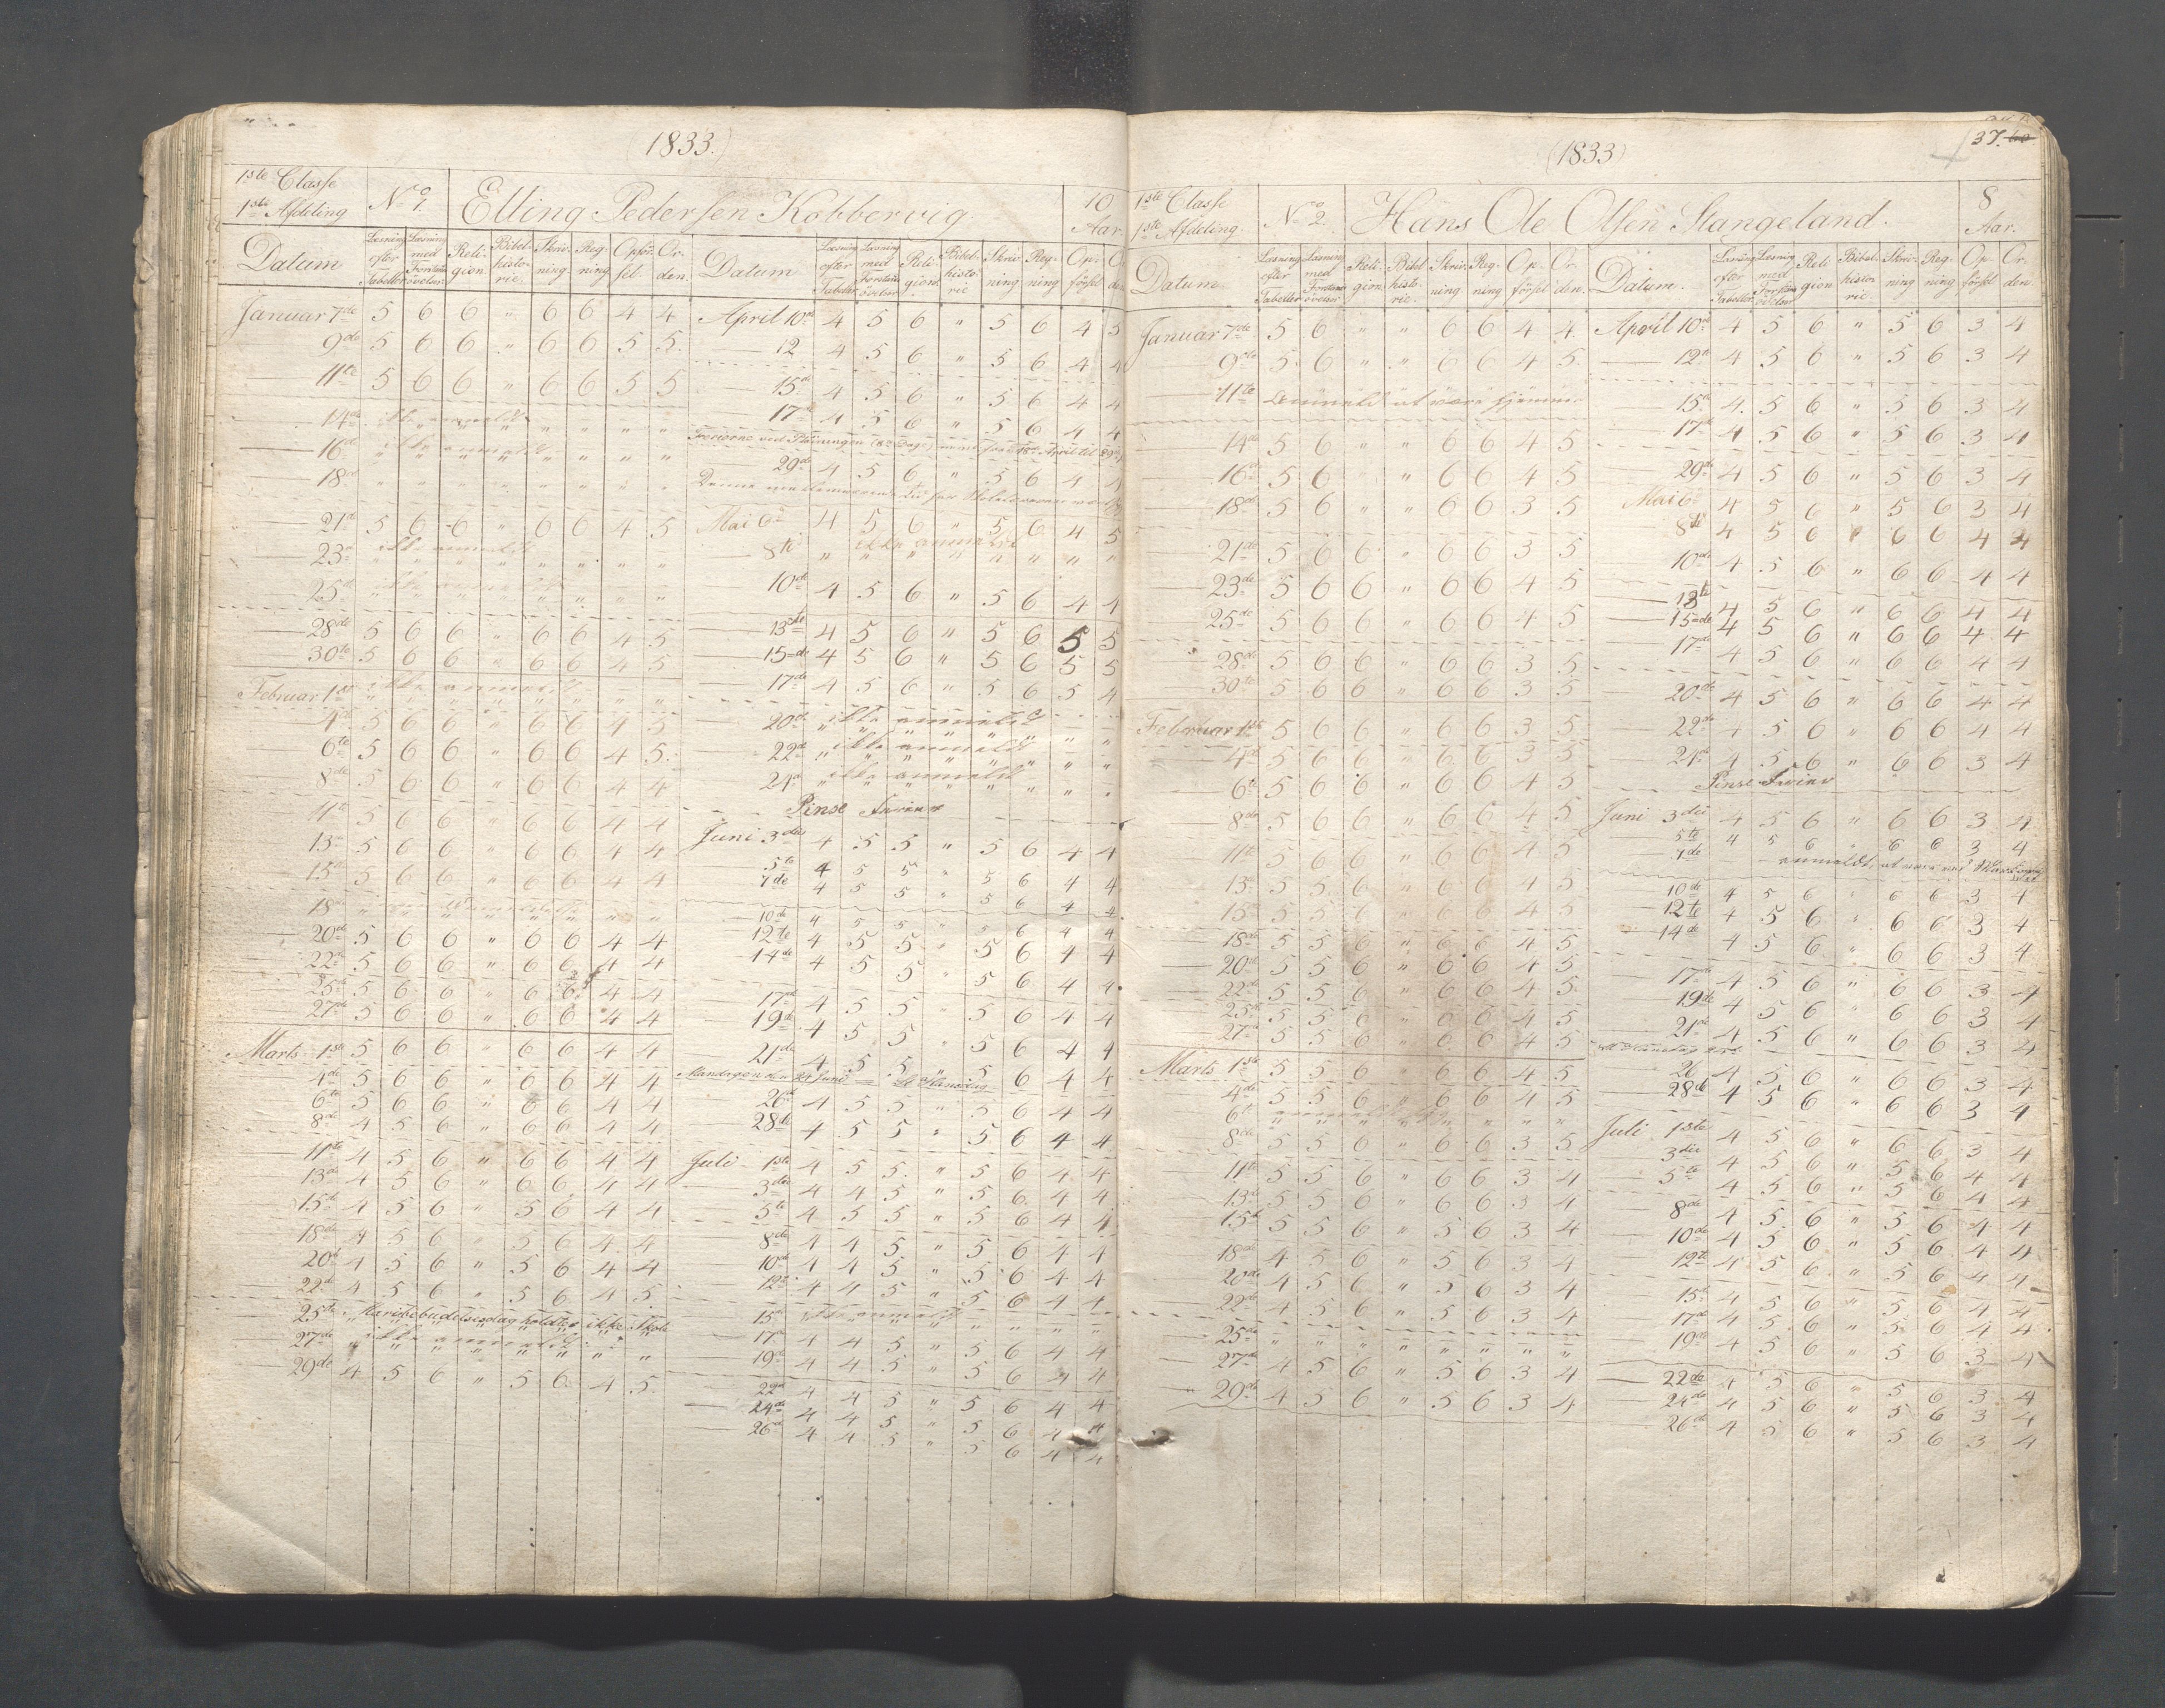 (1833.)
1ste Classe
1ste Afdeling
No 1.
Elling Pedersen Kobbervig
10
Aar.
Datum
Læsning efter Tabeller
Læsning med Forstands øvelser
Religion.
Bibelhistorie.
Skrivning
Regning
Opførsel.
Orden.
Januar 7de 5 6 6 " 6 6 4 4
9de 5 6 6 " 6 6 5 5.
11te 5 6 6 " 6 6 5 5
14de ikke anmeldt
16de ikke anmeldt
18de " " " " " " " "
21de 5 6 6 " 6 6 4 5
23de ikke anmeldt
25de ikke anmeldt
28de 5 6 6 " 6 6 4 5
30te 5 6 6 " 6 6 4 5
Februar 1ste ikke anmeldt
4de 5 6 6 " 6 6 4 5
6te 5 6 6 " 6 6 4 5.
8de 5 6 6 " 6 6 4 4
11te 5 6 6 " 6 6 4 4
13de 5 6 6 " 6 6 4 4
15de 5 6 6 " 6 6 4 4
18de
20de 5 6 6 " 6 6 4 4
22de 5 6 6 " 6 6 4 4
25de 5 6 6 " 6 6 4 4
27de 5 6 6 " 6 6 4 4
Marts 1ste 5 6 6 " 6 6 4 4
4de 5 6 6 " 6 6 4 4
6te 5 6 6 " 6 6 4 4
8de 4 5 6 " 6 6 4 4
11te 4 5 6 " 6 6 4 4
13de 4 5 6 " 6 6 4 4
15de 4 5 6 " 5 6 4 4
18de 4 5 6 " 5 6 4 4
20de 4 5 6 " 5 6 4 4
22de 4 5 6 " 5 6 4 5
25de Mariæbebudelsesdag holdtes ikke Skole
27de ikke anmeldt
29de 4 5 6 " 5 6 4 5
Datum
Læsning efter Tabeller
Læsning med Forstands øvelser
Religion.
Bibelhistorie
Skrivning
Regning
Opførsel
April 10de 4 5 6 " 5 6 4 5
12 4 5 6 " 5 6 4 4
15de 4 5 6 " 5 6 4 4
17de 4 5 6 " 5 6 4 4
29de 4 5 6 " 5 6 4 4
Mai 6te 4 5 6 " 5 6 4 5
8de ikke anmeldt
10de 4 5 6 " 5 6 4 4
13de 4 5 6 " 5 6 5 5
15de 4 5 6 " 5 6 5 5
17de 4 5 6 " 5 6 5 4
20de ikke anmeldt
22de ikke anmeldt
24de ikke anmeldt
Pinse Ferier
Juni 3die 4 5 5 " 5 6 4 4
5te 4 5 5 " 5 6 4 4
7de 4 5 5 " 5 6 4 4
10de 4 5 5 " 5 6 4 4
12te 4 5 5 " 5 6 4 4
14de 4 5 5 " 5 6 4 4
17de 4 5 5 " 5 6 4 4
19de 4 5 5 " 5 6 4 4
21de 4 5 5 " 5 6 4 4
Mandagen den 24 Juni St. Hansdag
26de 4 5 5 " 5 6 4 4
28de 4 5 5 " 5 6 4 4
Juli 1ste 4 5 5 " 5 6 4 4
3die 4 4 5 " 5 6 4 4
5te 4 5 5 " 5 6 4 4
8de 4 4 5 " 5 6 4 4
10de 4 4 5 " 5 6 4 4
12te 4 4 5 " 5 6 4 4
15de ikke anmeldt
17de 4 4 5 " 5 6 4 4
19de 4 4 5 " 5 6 4 4
22de 4 4 5 " 5 6 4 4
24de 4 4 5 " 5 6 4 4
26de 4 4 5 " 5 6 4 4
(1833)
37. 60
1ste Classe
1ste Afdeling
No 2.
Hans Ole Olsen Stangeland.
8
Aar.
Datum
Læsning efter Tabeller
Læsning med Forstands øvelser
Religion.
Bibelhistorie.
Skrivning
Regning
Opførsel
Orden.
Januar 7de 5 6 " " 6 6 4 4
9de 5 6 " " 6 6 4 5
11te
14de 5 6 " " 6 6 4 5
16de 5 6 " " 6 6 4 5
18de 5 6 " " 6 6 3 5
21de 5 6 6 " 6 6 3 5
23de 5 6 6 " 6 6 4 5
25de 5 6 6 " 6 6 4 5
28de 5 6 6 " 6 6 3 5
30te 5 6 6 " 6 6 3 5
Februar 1ste 5 6 6 " 6 6 3 5
4de 5 6 6 " 6 6 3 5
6te 5 6 6 " 6 6 4 5
8de 5 6 6 " 6 6 4 5
11te 5 6 6 " 6 6 4 5
13. 5 5 6 " 6 6 4 5
15 5 5 6 " 6 6 4 5
18de 5 5 6 " 6 6 4 5
20de 5 5 6 " 6 6 4 5
22de 5 5 6 " 6 6 4 5
25de 5 5 6 " 6 6 4 5
27de 5 5 6 " 6 6 4 5
Marts 1ste 5 5 6 " 6 6 4 5
4de 5 5 6 " 6 6 4 5
6te
8de 5 5 6 " 6 6 3 5
11te 5 5 6 " 6 6 3 4
13de 5 5 6 " 6 6 3 4
15de 5 5 6 " 5 6 3 4
18de 4 5 6 " 5 6 3 4
20de 4 5 6 " 5 6 3 4
22de 4 5 6 " 5 6 3 4
25de " " " " " " " "
27de 4 5 6 " 5 6 3 4
29de 4 5 6 " 5 6 3 4
Datum.
Læsning efter Tabeller
Læsning med Forstands øvelser
Religion
Bibelhistorie.
Skrivning
Regning
Opførsel
Orden.
April 10de 4 5 6 " 5 6 3 4
12te 4 5 6 " 5 6 3 4
15de 4 5 6 " 5 6 3 4
17de 4 5 6 " 5 6 3 4
29de 4 5 6 " 5 6 3 4
Mai 6te 4 5 6 " 5 6 3 4
8de 4 5 6 " 6 6 4 4
10de 4 5 6 " 6 6 4 4
13te 4 5 6 " 6 6 4 4
15de 4 5 6 " 6 6 4 4
17de 4 5 6 " 6 6 4 4
20de 4 5 6 " 6 6 4 4
22de 4 5 6 " 6 6 4 4
24de 4 5 6 " 6 6 3 4
Pinse Ferier
Juni 3die 4 5 6 " 6 6 3 4
5te 4 5 6 " 6 6 3 4
7de anmeldt, at være ved
10de 4 5 6 " 6 6 3 4
12te 4 5 6 " 6 6 3 4
14de 4 5 6 " 6 6 3 4
17de 4 5 6 " 6 6 3 4
19de 4 5 6 " 6 6 3 4
21de 4 5 6 " 6 6 3 4
26 4 5 6 " 6 6 3 4
28de 4 5 6 " 6 6 3 4
Juli 1ste 4 5 6 " 6 6 3 4
3die 4 5 6 " 5 6 4 4
5te 4 5 6 " 5 6 4 4
8de 4 5 6 " 5 6 4 4
10de 4 5 6 " 5 6 4 4
12te 4 5 6 " 5 6 4 4
15de 4 5 6 " 5 6 4 4
17de 4 5 6 " 5 6 4 4
19de 4 5 6 " 5 6 3 4
22de 4 5 6 " 5 6 3 4
24de 4 5 6 " 5 6 3 4
26de 4 5 6 " 5 6 3 4